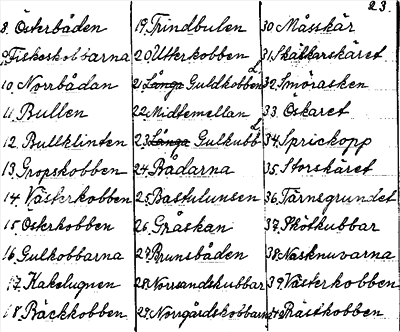 23.
8. Österbåden
9. Fiskeskobbarna
10. Norrbådan
11. Bullen
12. Bullklinten
13. Gropskobben
14. Västerkobben
15. Österkobben
16. Gulkobbarna
17. Kakelugnen
18. Bäckkobben
19. Trindbulen
20. Utterkobben
21. Långa Guldkobben
22. Midtemellan
23. Långa Gulkubb
24. Bådarna
25. Bastulunsen
26. Gråskan
27. Brunsbåden
28. Norsandskubbar
29. Norrgårdskobbarna
30. Måsskär
31. Skältarskäret
32. Smörasken
33. Öskaret
34. Sprickopp
35. Storskäret
36. Tärnegrundet
37. Skötkubbar
38. Nasknuvarna
39. Västerkobben
Prästkobben